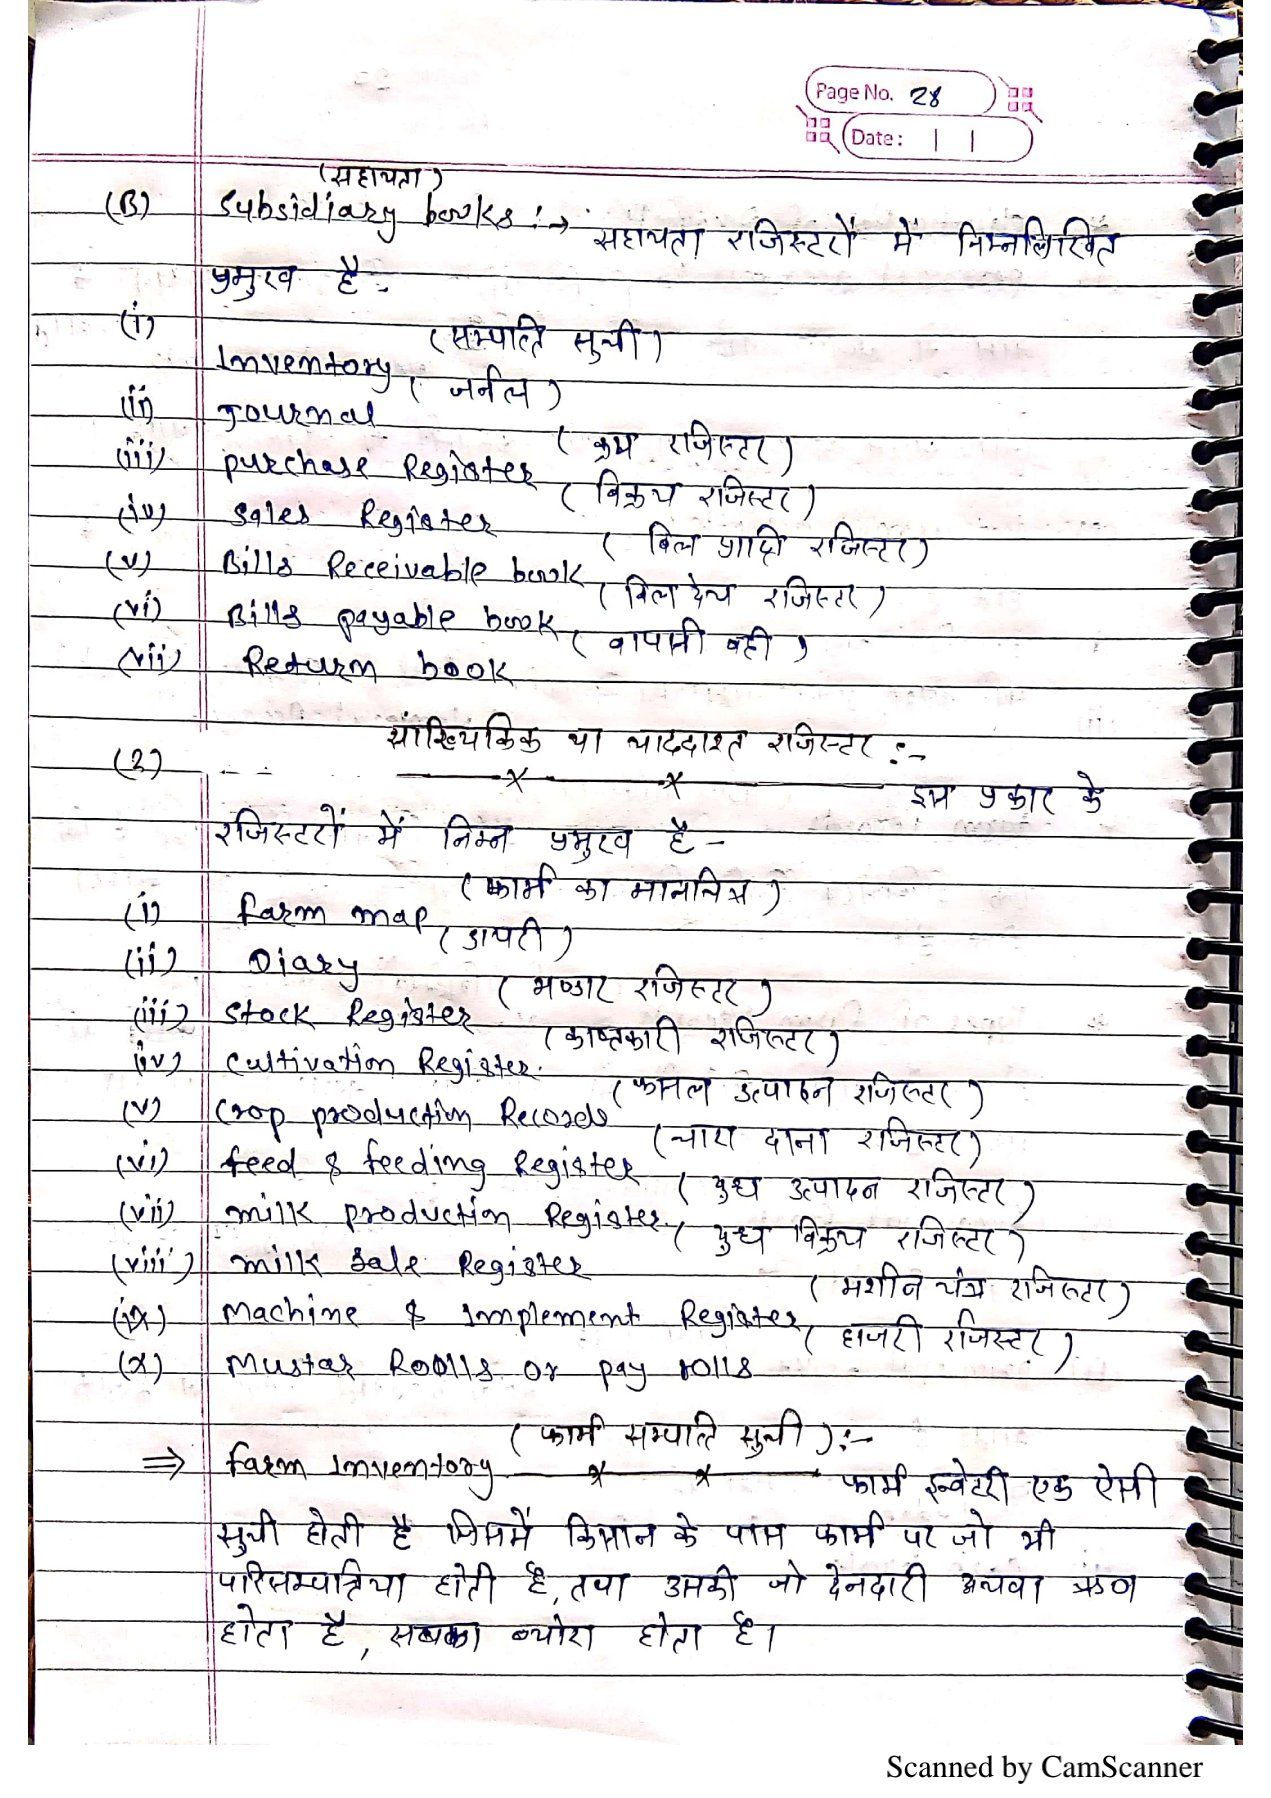 Page No. 28
Date: | |
(सहायता)
(B) Subsidiary books :→ सहायता रजिस्टरों में निम्नलिखित
प्रमुख है :-
(i) Inventory (सम्पत्ति सुची)
(ii) Journal (जर्नल)
(iii) purchase Register (क्रय रजिस्टर)
(iv) Sales Register (विक्रय रजिस्टर)
(v) Bills Receivable book (बिल प्राप्ति रजिस्टर)
(vi) Bills payable book (बिल देय रजिस्टर)
(vii) Return book (वापसी वही)
(2) सांख्यिकिक या याददाश्त रजिस्टर :- इस प्रकार के
रजिस्टरों में निम्न प्रमुख है -
(i) farm map (फार्म का मानचित्र)
(ii) Diary (डायरी)
(iii) Stock Register (भण्डार रजिस्टर)
(iv) Cultivation Register. (काष्तकारी रजिस्टर)
(v) Crop production Records (फसल उत्पादन रजिस्टर)
(vi) feed & feeding Register (चारा दाना रजिस्टर)
(vii) milk production Register. (दुग्ध उत्पादन रजिस्टर)
(viii) milk sale Register (दुग्ध विक्रय रजिस्टर)
(ix) Machine & Implement Register (मशीन यंत्र रजिस्टर)
(x) Mustar Roolls or pay rolls (हाजरी रजिस्टर)
⇒ farm Inventory (फार्म सम्पत्ति सुची) :- फार्म इन्वेटरी एक ऐसी
सुची होती है जिसमें किसान के पास फार्म पर जो भी
परिसम्पत्तिया होती है, तथा उसकी जो देनदारी अथवा ऋण
होता है, सबका ब्योरा होता है।
Scanned by CamScanner